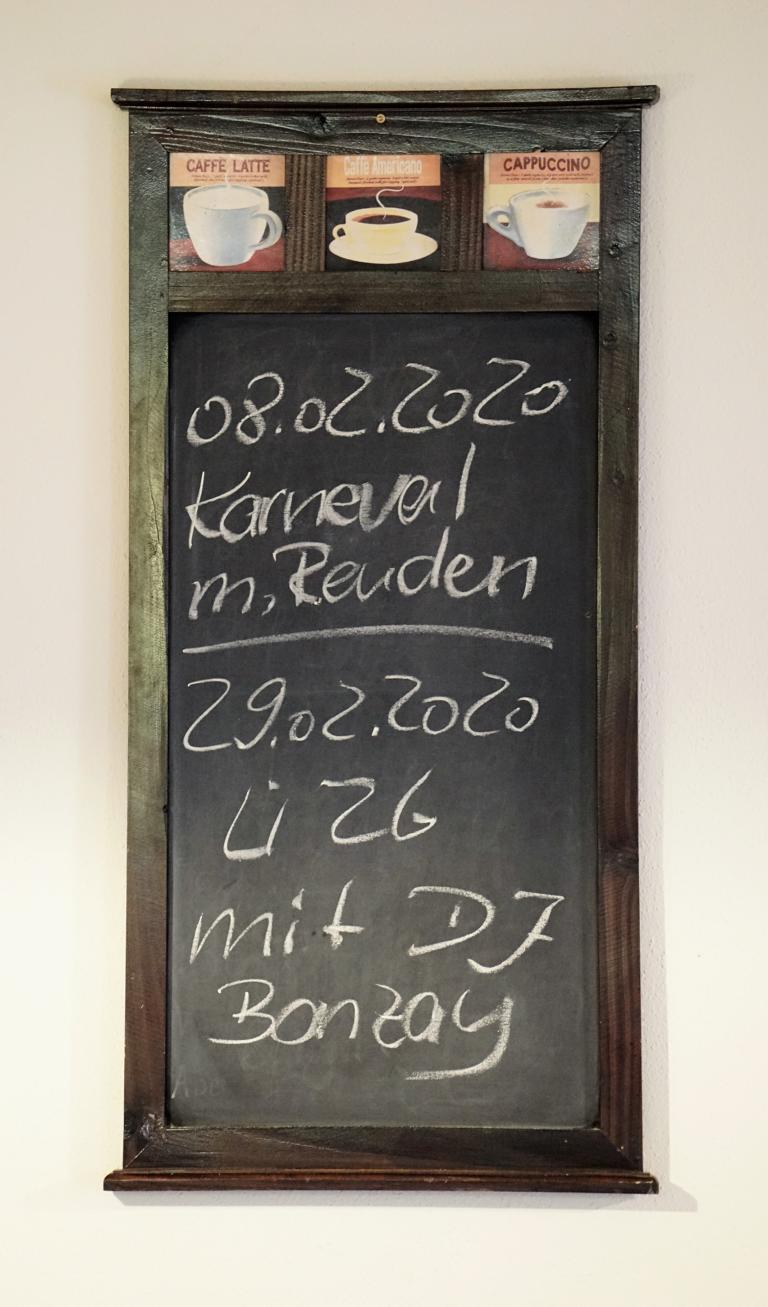 CAFFE LATTE
Caffe Americano
CAPPUCCINO
08.02.2020
Karneval
m, Reuden
29.02.2020
Ü 26
mit DJ
Bonzay